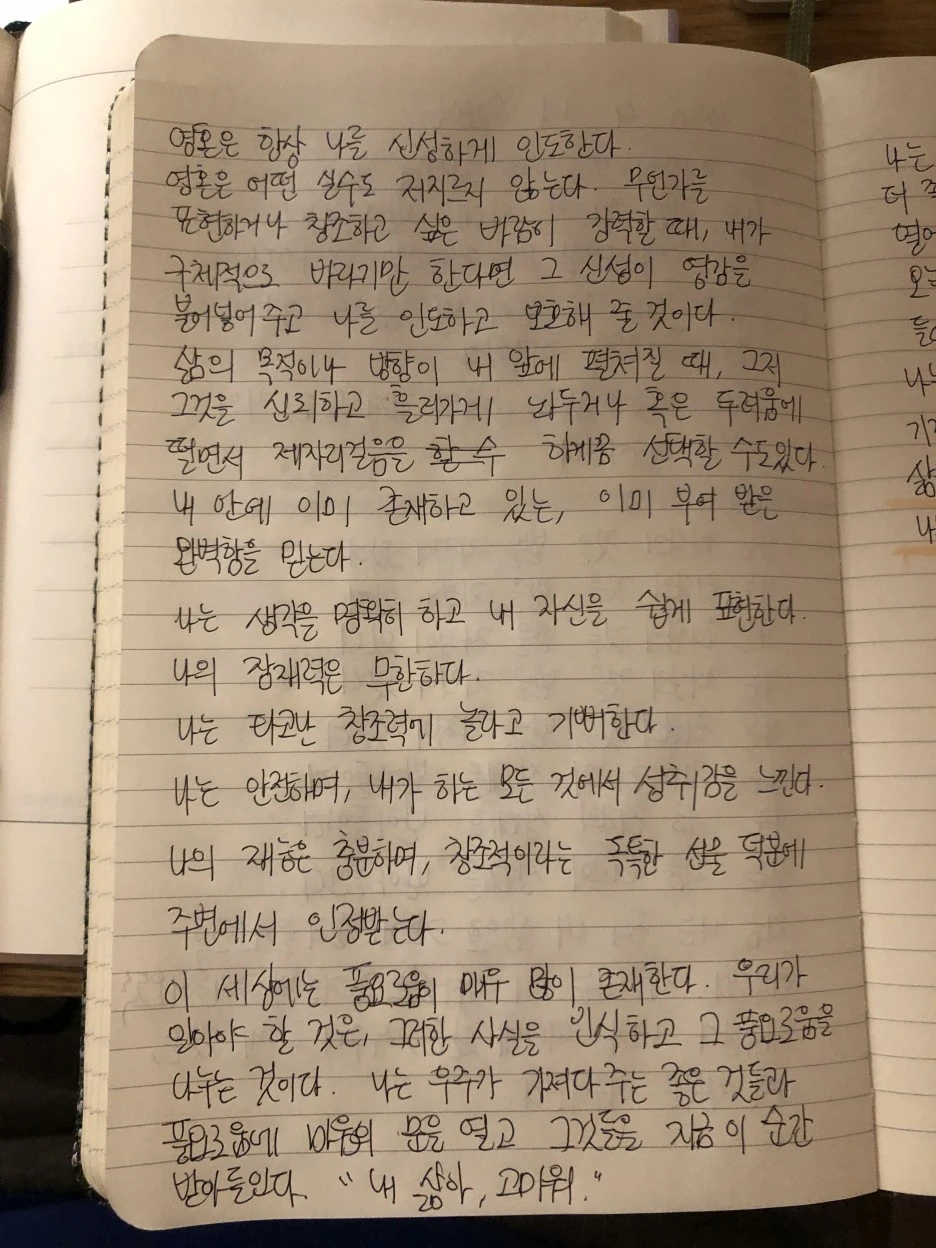 영혼은 항상 나를 신성하게 인도한다.
영혼은 어떤 실수도 저지르지 않는다. 무언가를
표현하거나 창조하고 싶은 바람이 강력할 때, 내가
구체적으로 바라기만 한다면 그 신성이 영감을
불어넣어 주고 나를 인도하고 보호해 줄 것이다.
삶의 목적이나 방향이 내 앞에 펼쳐질 때, 그저
그것을 신뢰하고 흘러가게 놔두거나 혹은 두려움에
떨면서 제자리걸음을 할 수 하게끔 선택할 수도있다.
내 안에 이미 존재하고 있는, 이미 부여 받은
완벽함을 믿는다.
나는 생각을 명확히 하고 내 자신을 쉽게 표현한다.
나의 잠재력은 무한하다.
나는 타고난 창조력에 놀라고 기뻐한다.
나는 안전하며, 내가 하는 모든 것에서 성취감을 느낀다.
나의 재능은 충분하며, 창조적이라는 독특한 선물 덕분에
주변에서 인정받는다.
이 세상에는 풍요로움이 매우 많이 존재한다. 우리가
알아야 할 것은, 그러한 사실을 인식하고 그 풍요로움을
나누는 것이다. 나는 우주가 가져다 주는 좋은 것들과
풍요로움에 마음의 문을 열고 그것들을 지금 이 순간
받아들인다. "내 삶아, 고마워."
나는
더
오늘
나는
삶